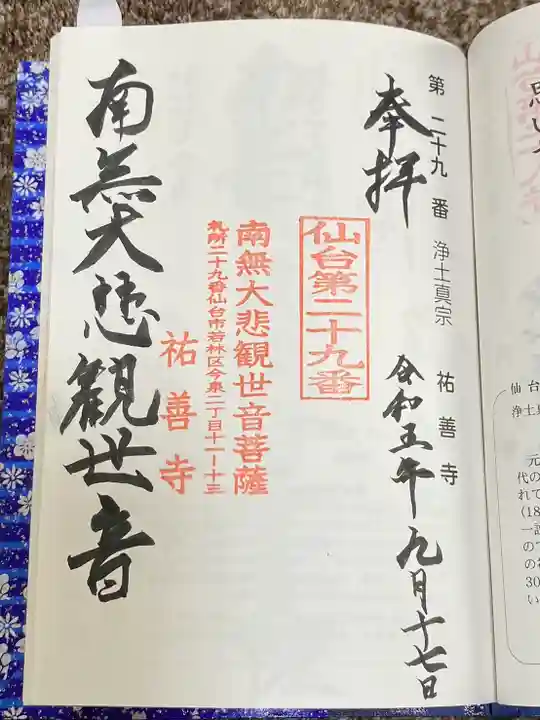 第二十九番 浄土真宗 祐善寺
奉拝
令和五年九月十七日
仙台第二十九番
南無大悲観世音菩薩
札所二十九番仙台市若林区今泉二丁目十一ー十三
祐善寺
南無大悲観世音
思い
仙台
浄土真
元
代の
れて
(18
一
の
30
い